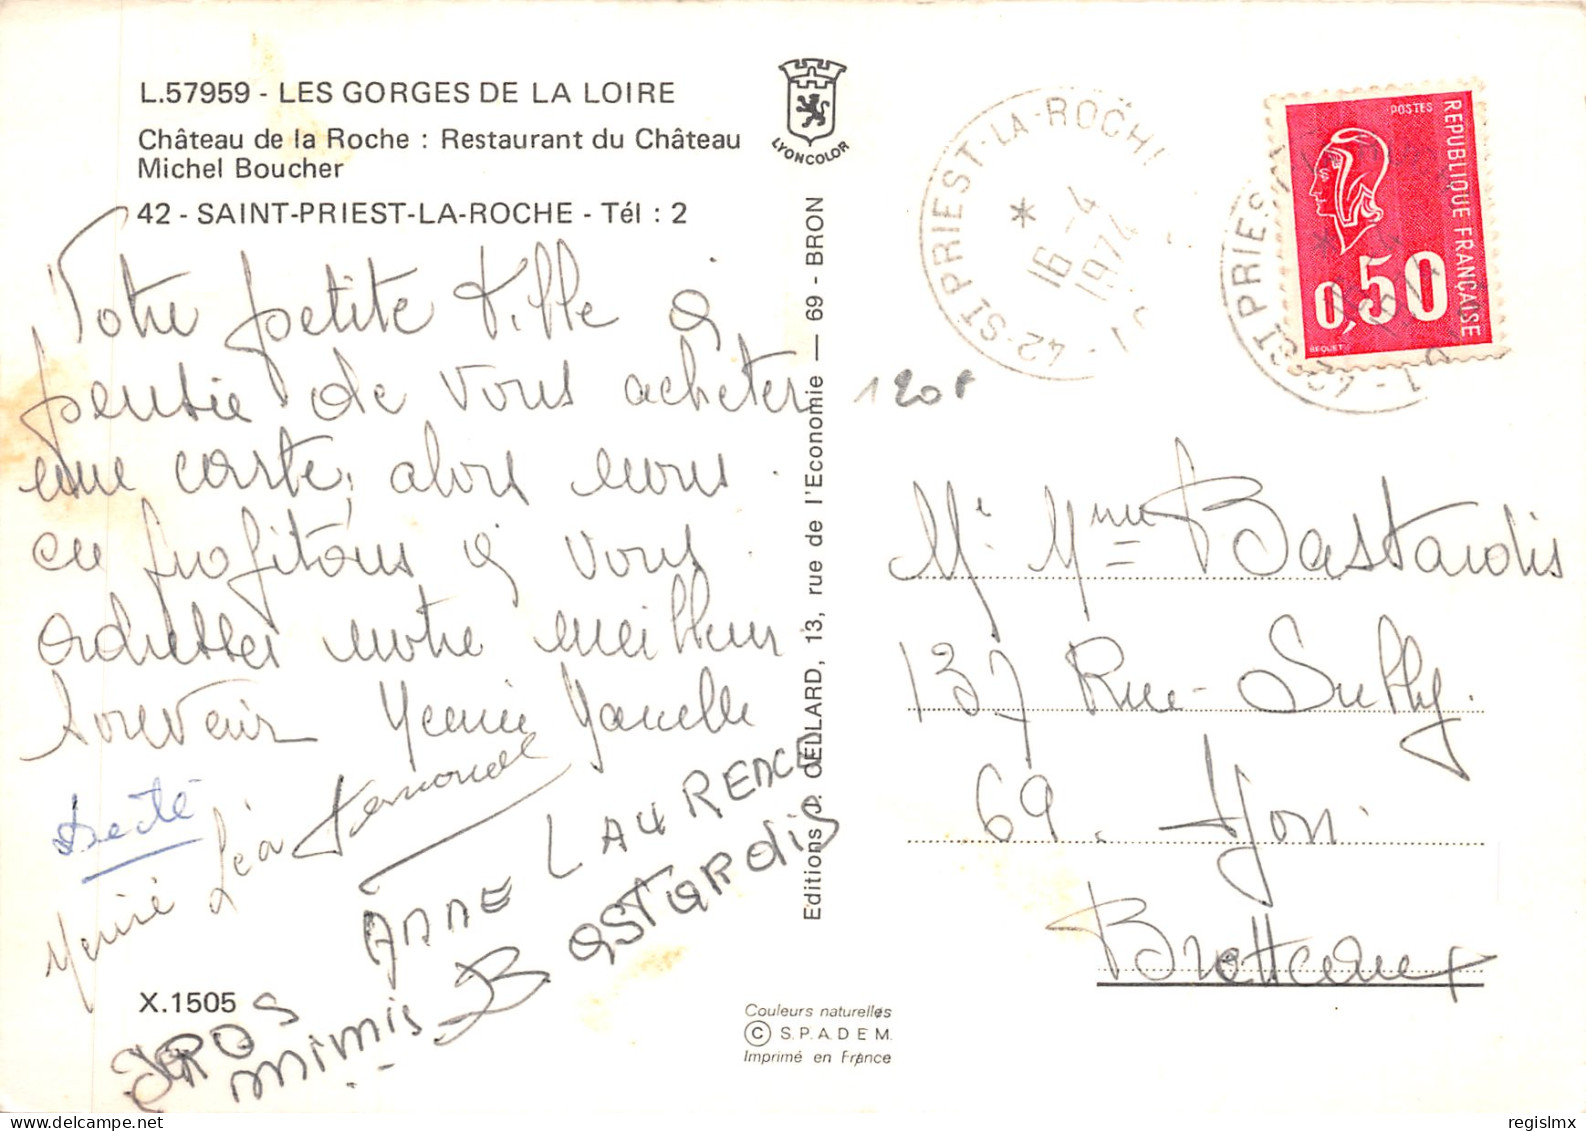 L.57959 - LES GORGES DE LA LOIRE
Château de la Roche : Restaurant du Château
Michel Boucher
42 - SAINT-PRIEST-LA-ROCHE - Tél : 2
LYONCOLOR
Votre petite fille a
pensée de vous acheter
une carte, alors nous
en profitons à vous
adresser notre meilleur
souvenir
Léa
ANNE LAURENCE
BASTARDIS
GROS mimis
X.1505
Editions J. CELLARD, 13, rue de l'Economie — 69 - BRON
Couleurs naturelles
© S.P.A.D.E.M.
Imprimé en France
42-ST PRIEST-LA-ROCH
*
16 -4
1974
POSTES
REPUBLIQUE FRANÇAISE
0,50
BEQUET
120F
Mr Mme Bastardis
137 Rue Sully.
69. Lyon
Brotteaux
regislmx